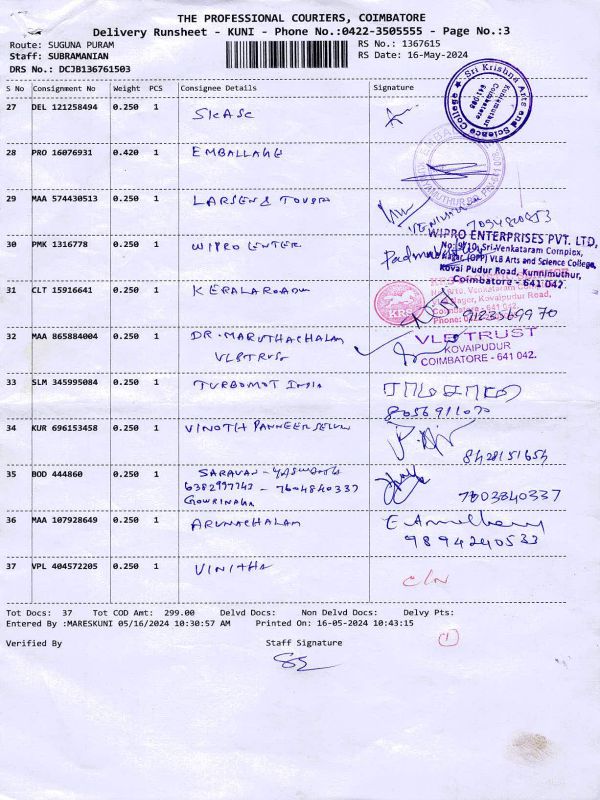 THE PROFESSIONAL COURIERS, COIMBATORE
Delivery Runsheet - KUNI - Phone No.:0422-3505555 - Page No.:3
Route: SUGUNA PURAM RS No.: 1367615
Staff: SUBRAMANIAN RS Date: 16-May-2024
DRS No.: DCJB136761503
S No Consignment No Weight PCS Consignee Details Signature
27 DEL 121258494 0.250 1 SKASC
Sri Krishna Arts and Science College
Coimbatore
28 PRO 16076931 0.420 1 EMBALLAGE
29 MAA 574430513 0.250 1 LARSEN & TOUBRO
30 PMK 1316778 0.250 1 WIPRO CENTER
WIPRO ENTERPRISES PVT. LTD,
No: 9/10, Sri Venkataram Complex,
Nagar, (OPP) VLB Arts and Science College,
Kovai Pudur Road, Kunnimuthur,
Coimbatore - 641 042.
31 CLT 15916641 0.250 1 KERALA ROADW
KRS
9123569970
32 MAA 865884004 0.250 1 DR. MARUTHACHALAM
VLB TRUST
VLB TRUST
KOVAIPUDUR
COIMBATORE - 641 042.
33 SLM 345995084 0.250 1 TURBOMOT INDIA
8056911070
34 KUR 696153458 0.250 1 VINOTH PANNEER SELVM
8428151654
35 BOD 444860 0.250 1 SARAVAN - YASWANTH
6382997743 - 7604840337
GOWRINAGA
7603840337
36 MAA 107928649 0.250 1 ARUNACHALAM
9894240533
37 VPL 404572205 0.250 1 VINITHA
C/N
Tot Docs: 37 Tot COD Amt: 299.00 Delvd Docs: Non Delvd Docs: Delvy Pts:
Entered By :MARESKUNI 05/16/2024 10:30:57 AM Printed On: 16-05-2024 10:43:15
1
Verified By Staff Signature